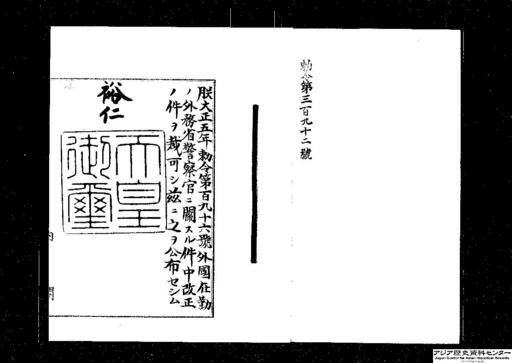 勅令第三百九十二號
朕大正五年勅令第百九十六號外國在勤
ノ外務省警察官ニ關スル件中改正
ノ件ヲ裁可シ茲ニ之ヲ公布セシム
裕仁
天皇御璽
内閣
アジア歴史資料センター
Japan Center for Asian Historical Records